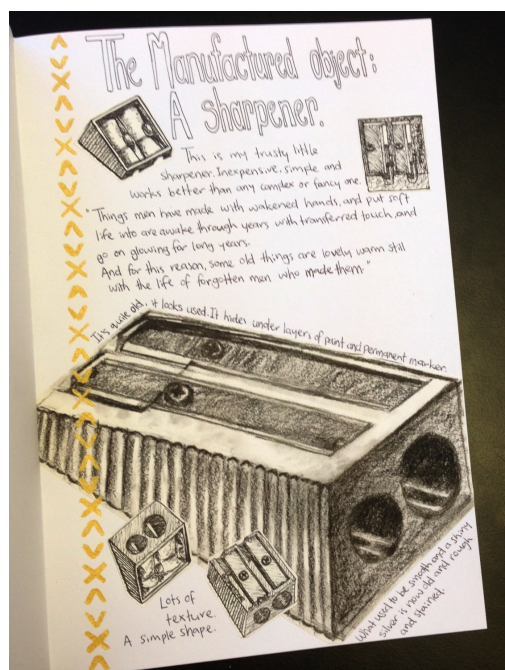 The Manufactured object:
A sharpener.
This is my trusty little
sharpener. Inexpensive, simple and
works better than any complex or fancy one.
"Things men have made with wakened hands, and put soft
life into are awake through years with transferred touch, and
go on glowing for long years.
And for this reason, some old things are lovely warm still
with the life of forgotten men who made them."
It's quite old, it looks used. It hides under layers of paint and permanent marker.
Lots of
texture.
A simple shape.
What used to be smooth and a shiny
silver is now old and rough
and stained.